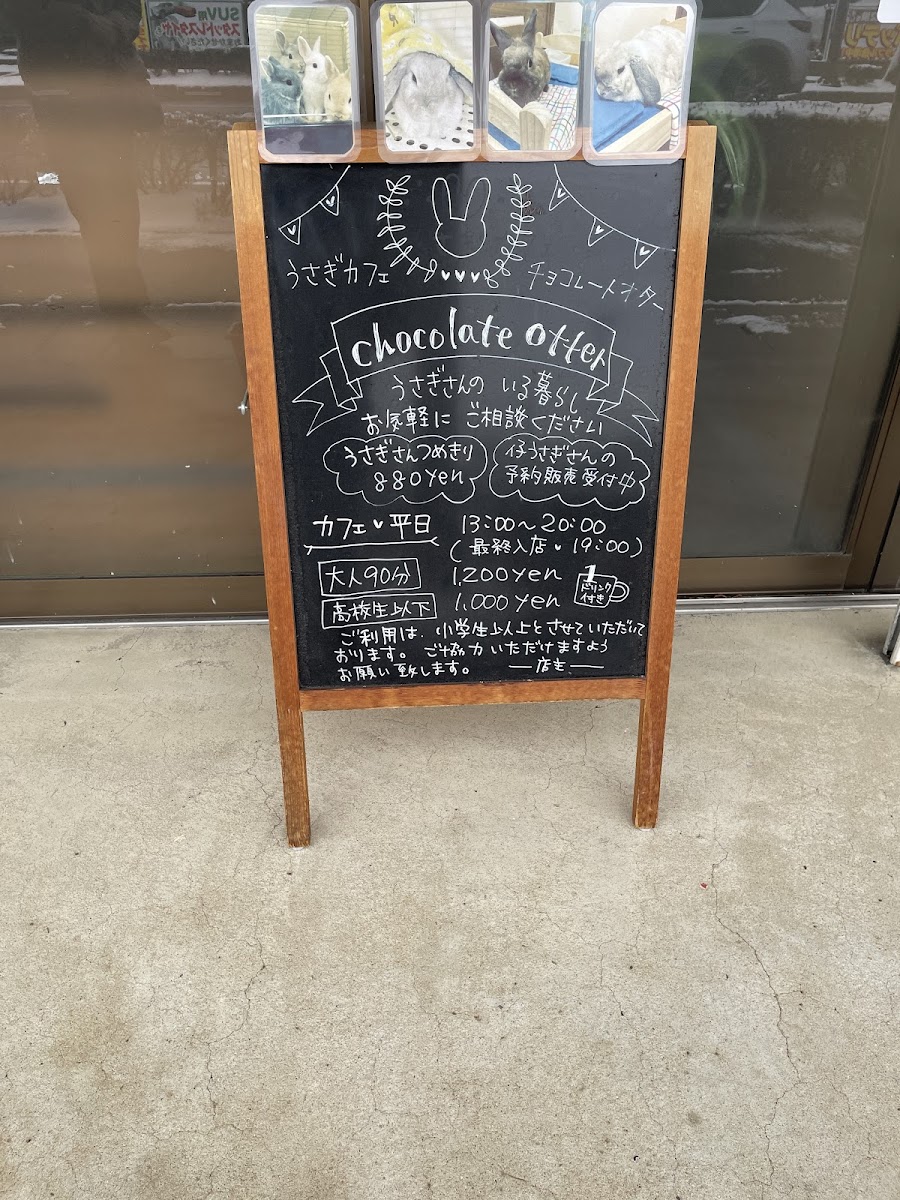 SUV用
スタッドレスタイヤ
うさぎカフェ
チョコレートオター
chocolate otter
うさぎさんの いる暮らし
お気軽に ご相談ください
うさぎさんつめきり
880yen
仔うさぎさんの
予約販売受付中
カフェ♥平日 13:00~20:00
(最終入店♥19:00)
大人90分 1,200yen
高校生以下 1,000yen
1ドリンク
付き
ご利用は、小学生以上とさせていただいて
おります。ご協力いただけますよう
お願い致します。 ―店主―